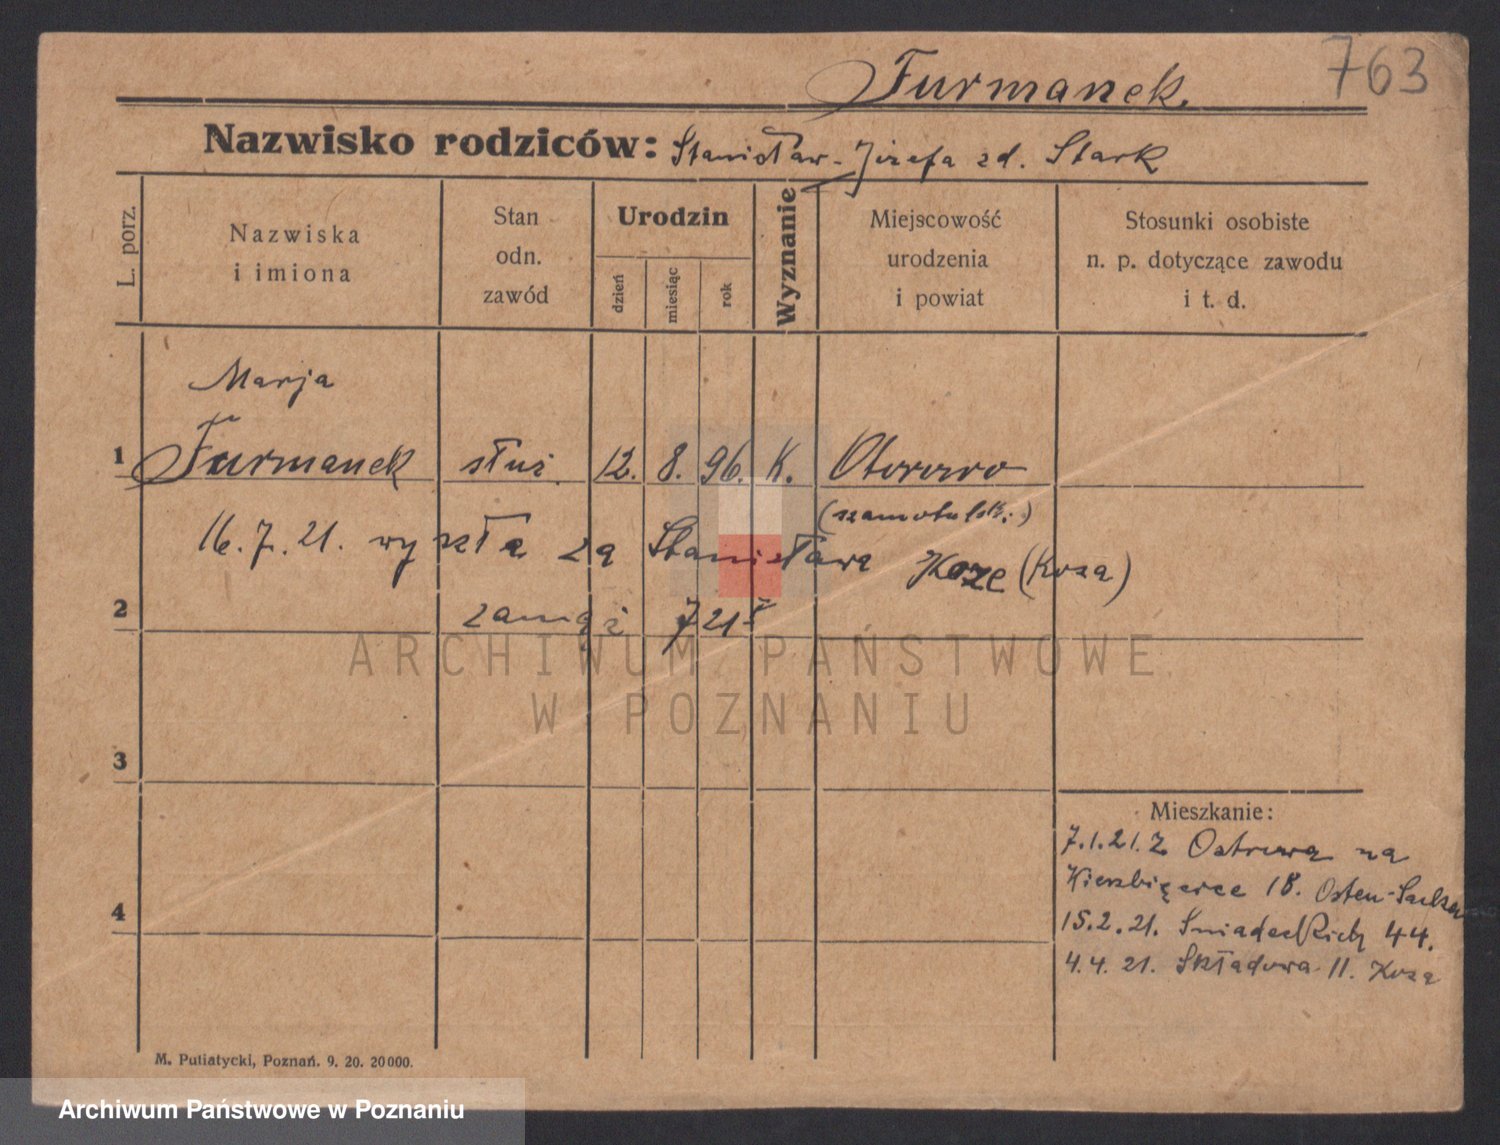 763
Furmanek
Nazwisko rodziców: Stanisław-Józefa zd. Stark
L. porz.
Nazwiska
i imiona
Stan
odn.
zawód
Urodzin
dzień
miesiąc
rok
Wyznanie
Miejscowość
urodzenia
i powiat
Stosunki osobiste
n. p. dotyczące zawodu
i t. d.
Marja
1 Furmanek służ. 12. 8. 96. K. Otorowo
16.7.21. wyszła za Stanisława Koze (Koza)
2 zamąż 721
3
4
Mieszkanie:
7.1.21. Z Ostrowa na
18. Osten-Sacken
15.2.21. Śniadeckich 44.
4.4.21. Składowa 11. Koza
M. Putiatycki, Poznań. 9. 20. 20000.
ARCHIWUM PAŃSTWOWE
W POZNANIU
Archiwum Państwowe w Poznaniu